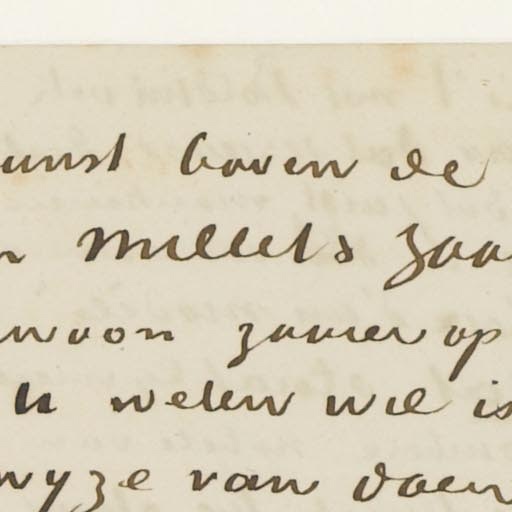 unst boven de
n Millets zaa
woon zaaier op
k weten wil is
wyze van doen